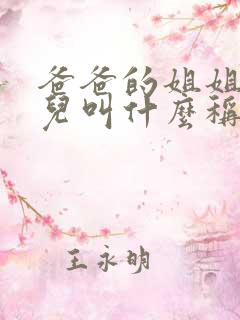 爸爸的姐姐
兒叫什麼稱
王永明